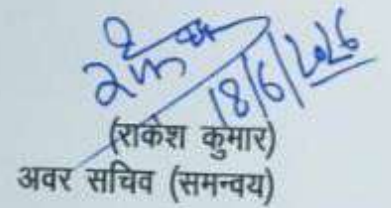 18/6/2026
(राकेश कुमार)
अवर सचिव (समन्वय)